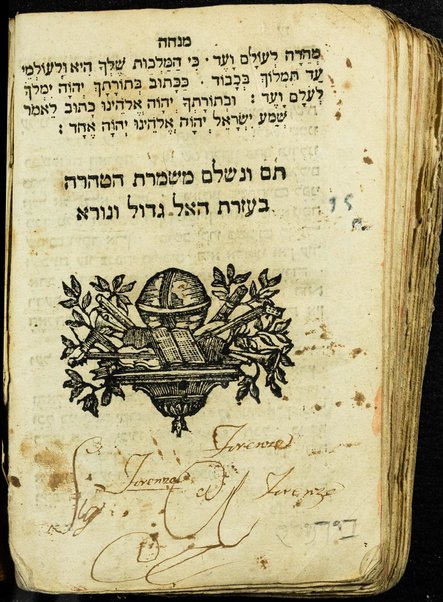 מנחה
מהרה לעולם ועד · כי המלכות שלך היא ולעולמי
עד תמלוך בכבוד · ככתוב בתורתך יהוה ימלך
לעלם ועד : ובתורתך יהוה אלהינו כתוב לאמר
שמע ישראל יהוה אלהינו יהוה אחד :
תם ונשלם משמרת הטהרה
בעזרת האל גדול ונורא
15
Firenze
Firenze
Firenze